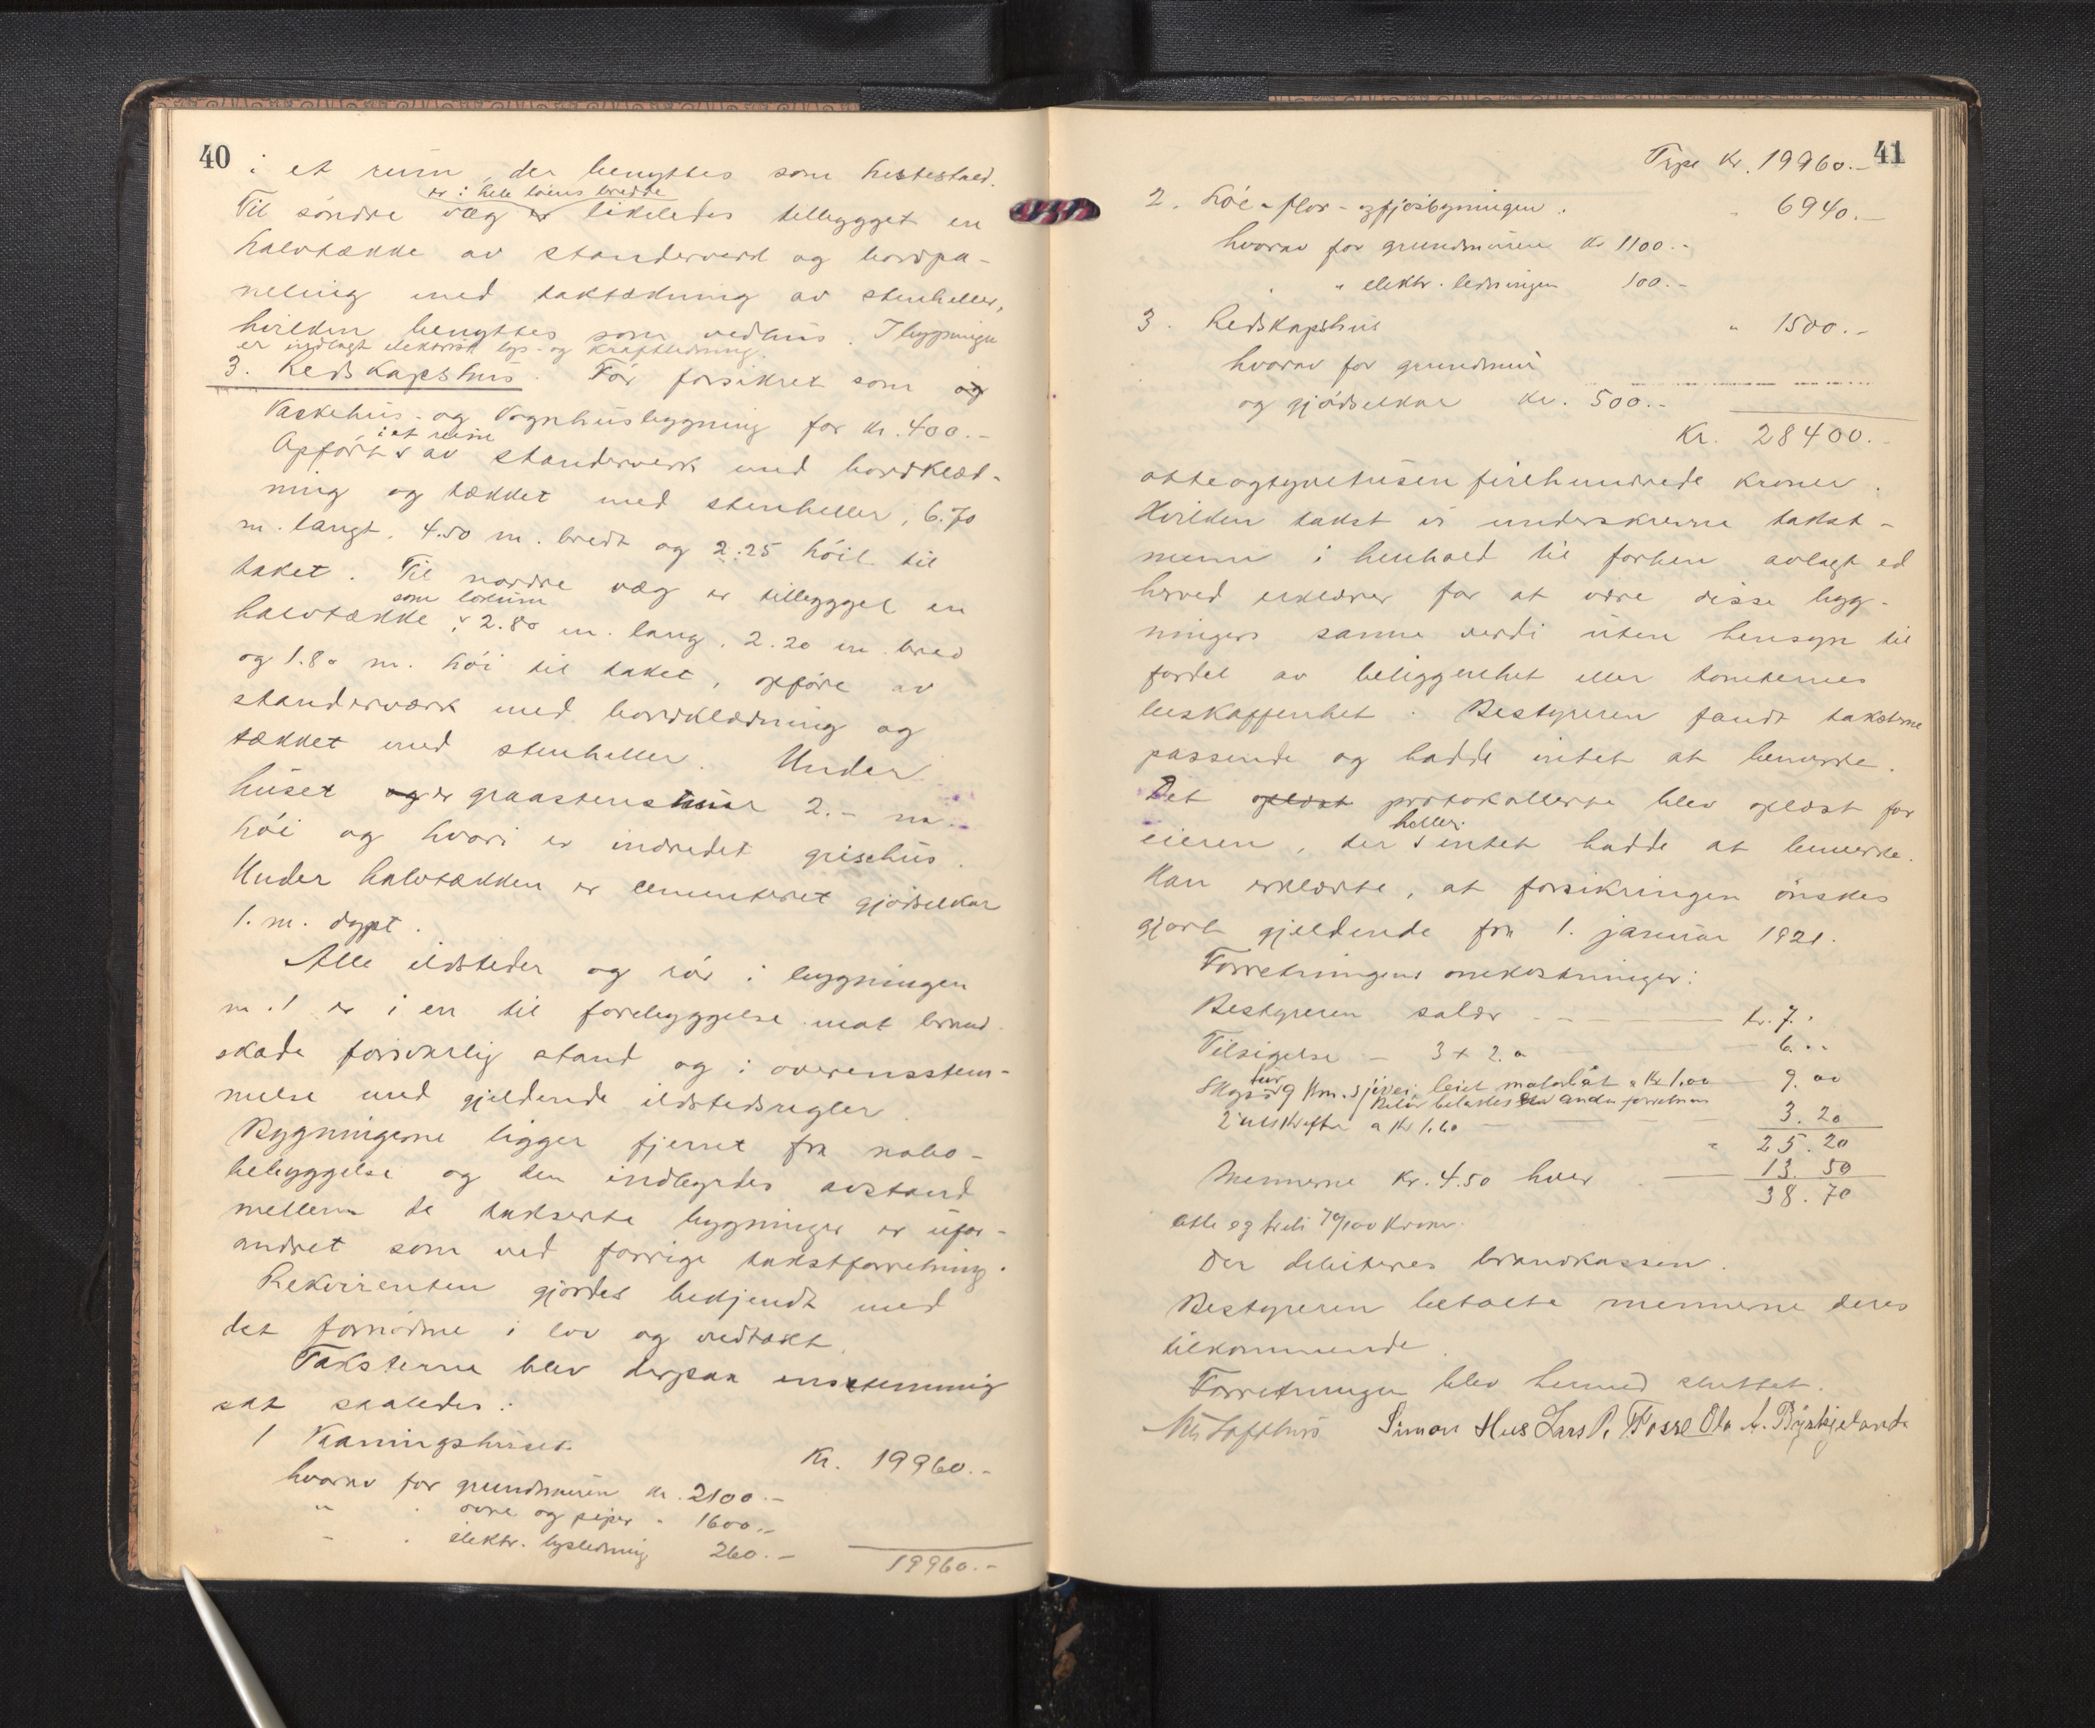 40
i et rum, der benyttes som hestestald.
er i hele løens bredde
Til søndre væg er likeledes tilbygget en
halvtække av standerverk og bordpa-
neling med taktækning av stenheller,
hvilken benyttes som vedhus. I bygningen
er indlagt elektrisk lys- og kraftledning.
3. Redskapshus. Før forsikret som og
Vaskehus- og Vognhusbygning for kr. 400.-
i et rum
Opført av standerverk med bordklæd-
ning og tækket med stenheller, 6.70
m. langt, 4.50 m. bredt og 2.25 høit til
taket. Til nordre væg er tilbygget en
som lokum
halvtække, 2.80 m. lang, 2.20 m. bred
og 1.80 m. høi til taket, opført av
standerværk med bordklædning og
tækket med stenheller. Under
huset og er graastensmur 2.- m.
høi og hvori er indredet grisehus.
Under halvtækken er cementeret gjødselkar
1. m. dypt.
Alle ildsteder og rør i bygningen
m. 1 er i en til forebyggelse mot brand-
skade forsvarlig stand og i overensstem-
melse med gjeldende ildstedsregler
Bygningerne ligger fjernt fra nabo-
bebyggelse og den indbyrdes avstand
mellem de takserte bygninger er ufor-
andret som ved forrige takstforretning.
Rekvirenten gjordes bekjendt med
det fornødne i lov og vedtækt.
Taksterne blev derpaa enstemmig
sat saaledes:
1 Vaaningshuset Kr. 19960.-
hvorav for grundmuren kr. 2100.-
" " ovne og piper " 1600.-
" " elektr. lysledning 260.-
19960.-
41
Kr. 19960.-
2. Løe- flor- og fjøsbygningen. " 6940.-
hvorav for grundmuren kr 1100.-
" " elektr. ledningen 100.-
3. Redskapshus " 1500.-
hvorav for grundmur
og gjødselkar kr. 500.-
Kr. 28400.-
otteogtyvetusen firehundrede kroner.
Hvilken takst vi underskrevne takst-
menn i henhold til forhen avlagt ed
herved erklærer for at være disse byg-
ningers sanne verdi uten hensyn til
fordel av beliggenhet eller tomternes
beskaffenhet. Bestyreren fandt taksterne
passende og hadde intet at bemerke.
Det oplæst protokollerte blev oplæst for
heller
eieren, der intet hadde at bemerke.
Han erklærte, at forsikringen ønskes
gjort gjeldende fra 1. januar 1921.
Forretningens omkostninger:
Bestyreren salær - kr. 7.-
Tilsigelse - 3 x 2.- 6.--
tur
Skyss 9 km. sjøvei, leiet motorbåt a Kr 1.00 9.00
Retur belastes anden forretning
2 utskrifter a Kr 1.60 3.20
" 25.20
Mennerne kr. 4.50 hver 13.50
38.70
otte og treti 70/100 kroner.
Der debiteres brandkassen.
Bestyreren betalte mennerne deres
tilkommende.
Forretningen blev hermed sluttet.
Simon Hus Lars P. Fosse Ola A. Byskjelande